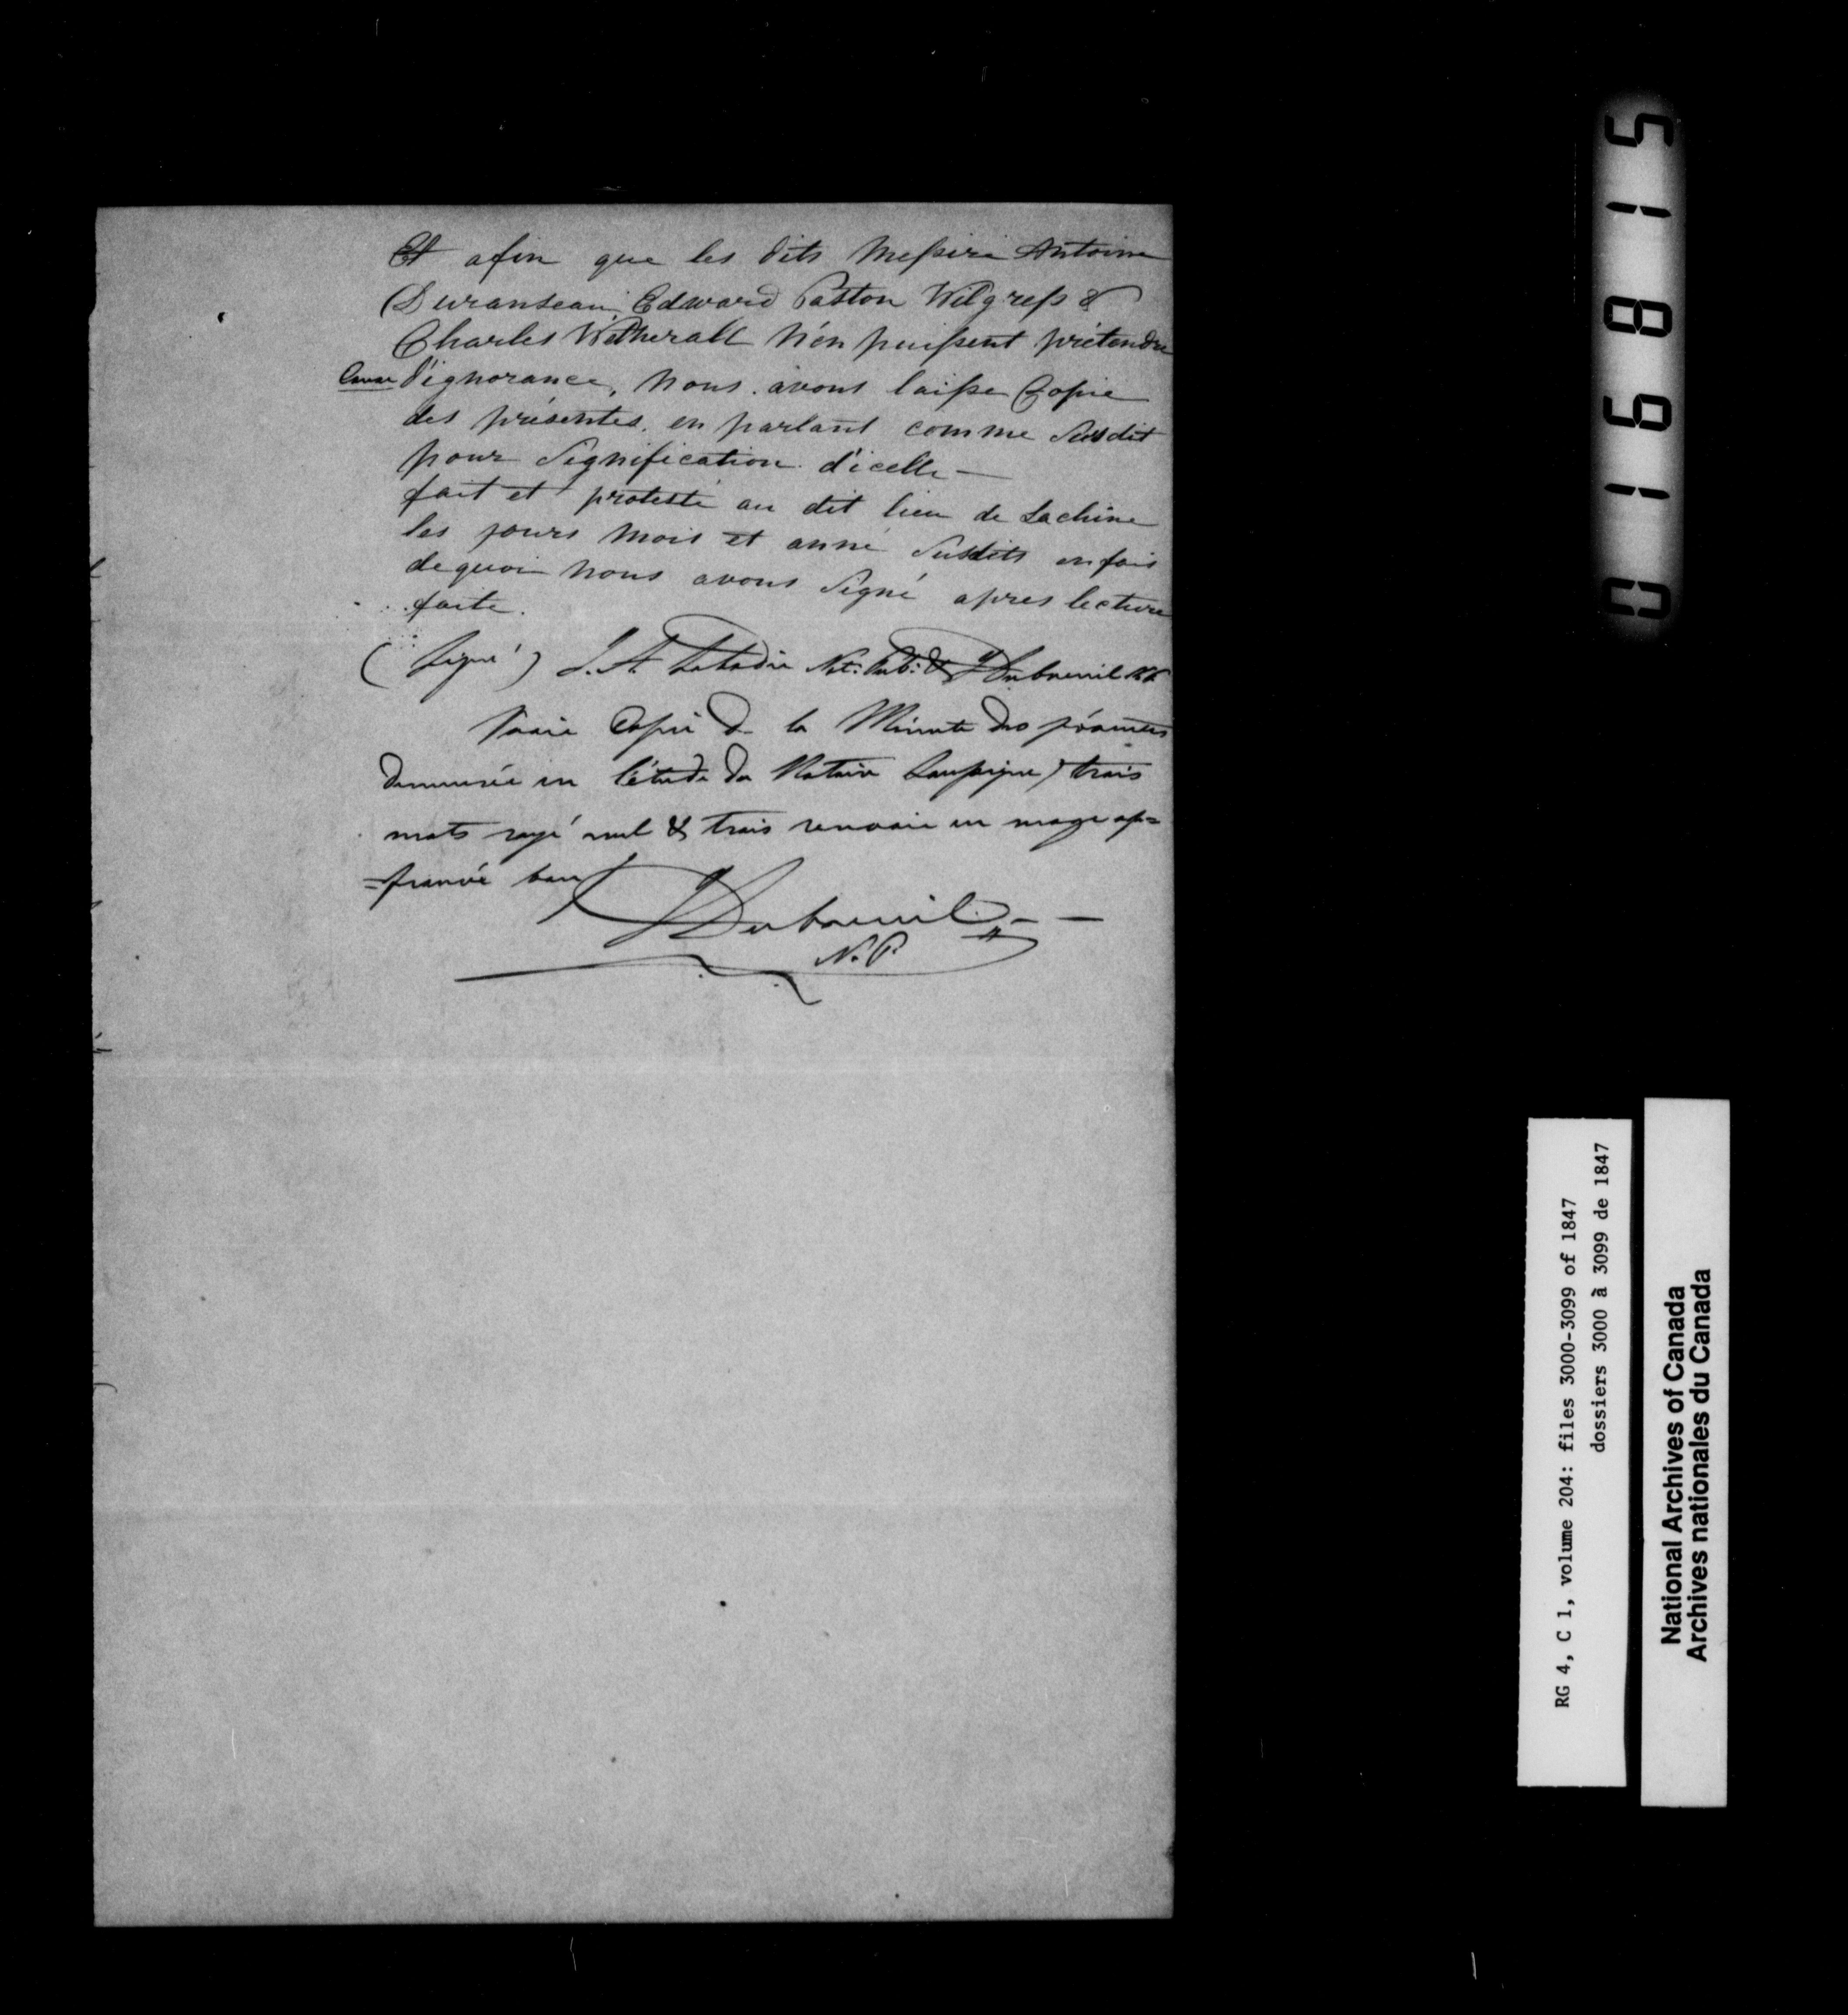 Et afin que les dits Messire Antoine
Duranseau, Edward Paston Wilgress &
Charles Wetherall n'en puissent prétendre
Cause d'ignorance, nous avons laissé Copie
des présentes en parlant comme Susdit
pour Signification d'icelle —
fait et protesté au dit lieu de Lachine
les jours mois et anné Susdits en foi
de quoi nous avons Signé apres lecture
faite.
(Signé) J. A. Labadie Not: Pub: & J Dubreuil N.P.
Vraie Copie de la Minute des présentes
demeurée en l'étude du Notaire Soussigné, trois
mots rayé nul & trois renvoie en marge ap=
=prouvé bon
J Dubreuil
N. P.
016815
RG 4, C 1, volume 204: files 3000-3099 of 1847
dossiers 3000 à 3099 de 1847
National Archives of Canada
Archives nationales du Canada